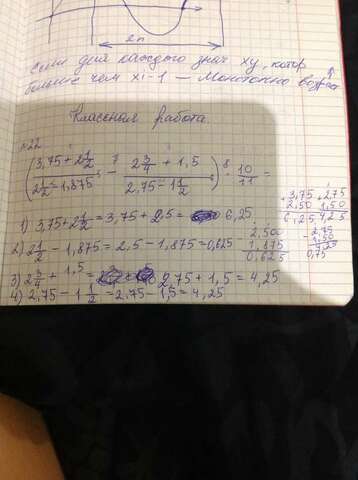 2π
если для каждого знач xy, котор
больше чем xi-1 — Монотонно возрас
Классная работа
№22
(3,75+2 1/2 / 2 1/2 - 1,875 - 2 3/4 + 1,5 / 2,75 - 1 1/2) · 10/11 =
3,75 + 2,50 6,25
2,75 + 1,50 4,25
1) 3,75+2 1/2 = 3,75 + 2,5 = 6,25
2) 2 1/2 - 1,875 = 2,5 - 1,875 = 0,625
2,500 - 1,875 0,625
3) 2 3/4 + 1,5 = 2,75 + 1,5 = 4,25
4) 2,75 - 1 1/2 = 2,75 - 1,5 = 4,25